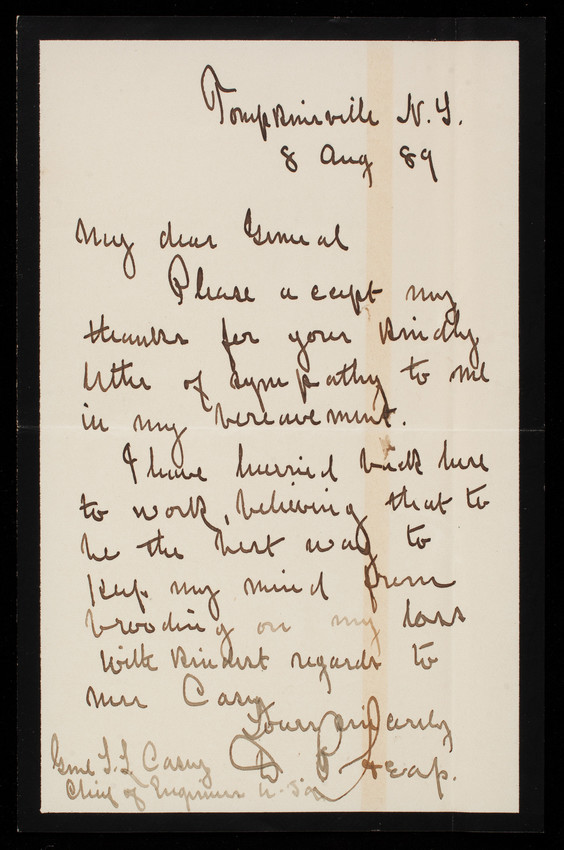 Tompkinsville N.Y.
8 Aug 89
My dear General
Please accept my
thanks for your kindly
letter of sympathy to me
in my bereavement.
I have hurried back here
to work, believing that to
be the best way to
keep my mind from
brooding on my loss
With kindest regards to
Mrs Casey
Yours sincerely
D P Heap.
Genl T. L Casey
Chief of Engineers U.S.A